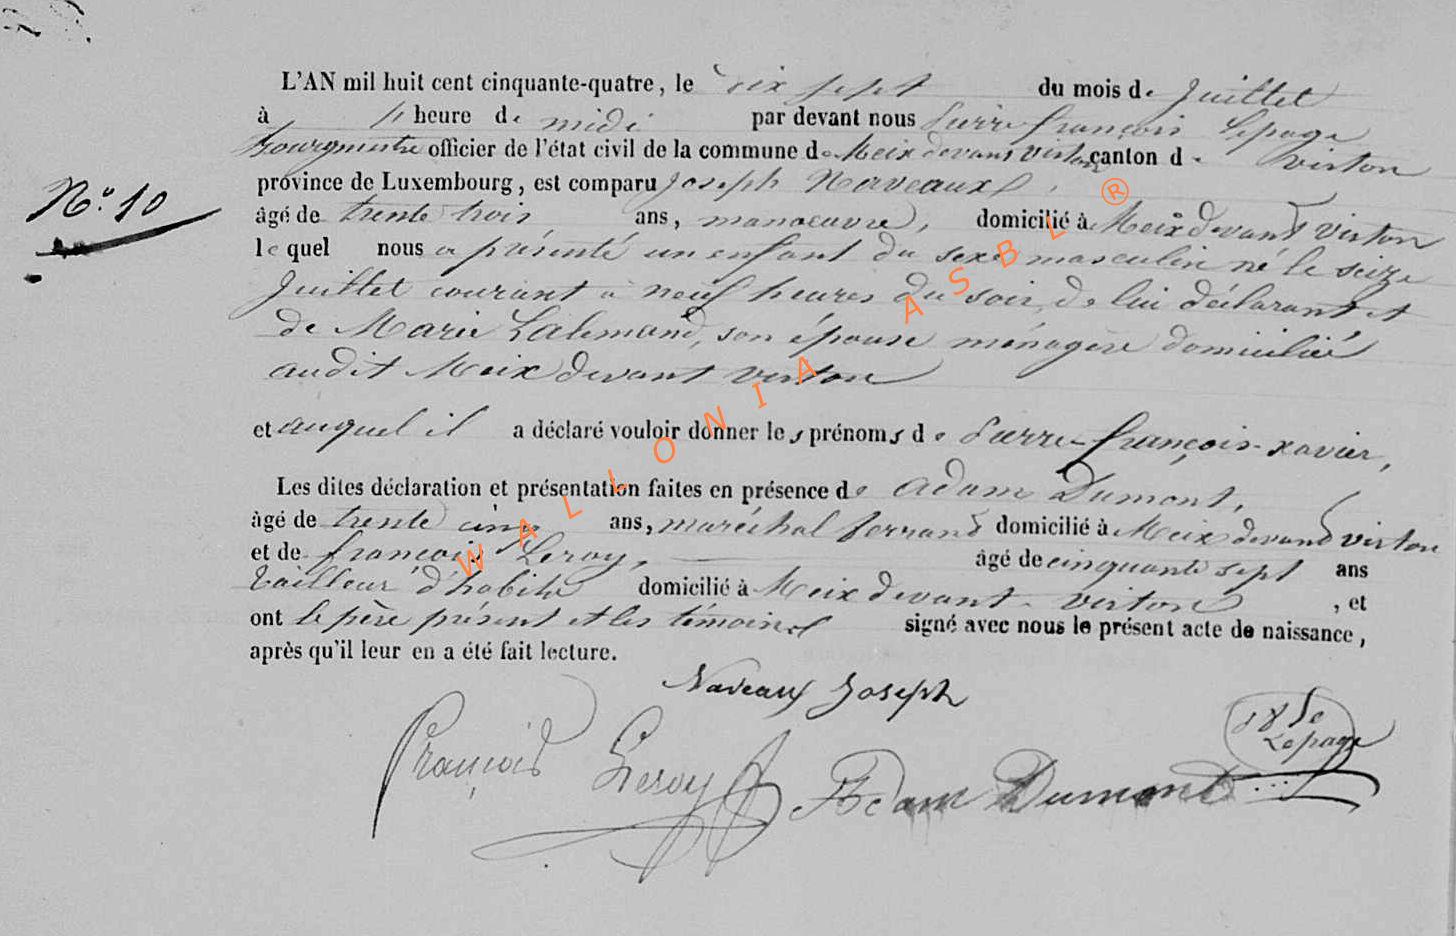 L'AN mil huit cent cinquante-quatre, le dix sept du mois de Juillet
à heure de midi par devant nous Pierre françois Lepage
bourgmestre officier de l'état civil de la commune de Meix devant virton canton de virton
N° 10
province de Luxembourg, est comparu Joseph Naveaux
âgé de trente trois ans, manoeuvre, domicilié à Meix devant virton
lequel nous a présenté un enfant du sexe masculin né le seize
Juillet courant à neuf heures du soir, de lui déclarant et
de Marie Lalemand, son épouse ménagère domiciliés
audit Meix devant virton
et auquel il a déclaré vouloir donner les prénoms de Pierre-françois-xavier,
Les dites déclaration et présentation faites en présence de Adam Dumont,
âgé de trente cinq ans, maréchal ferrand domicilié à Meix devant virton
et de françois Leroy, âgé de cinquante sept ans
tailleur d'habits domicilié à Meix devant virton, et
ont le père présent et les témoins signé avec nous le présent acte de naissance,
après qu'il leur en a été fait lecture.
Naveaux Joseph
Lepage
François Leroy Adam Dumont
WALLONIA ASBL ®